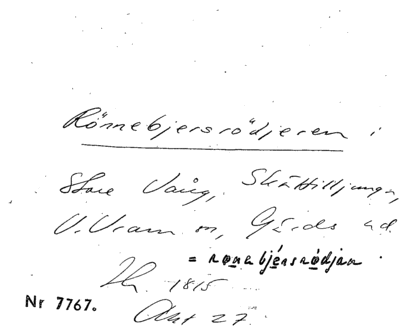 Rönnebjersrödjeren i
Store Vång, Skättilljunga,
V. Vram sn, Gärds hd
= rönebjérsrödjan.
Th. 1815
Akt 27
Nr 7767.